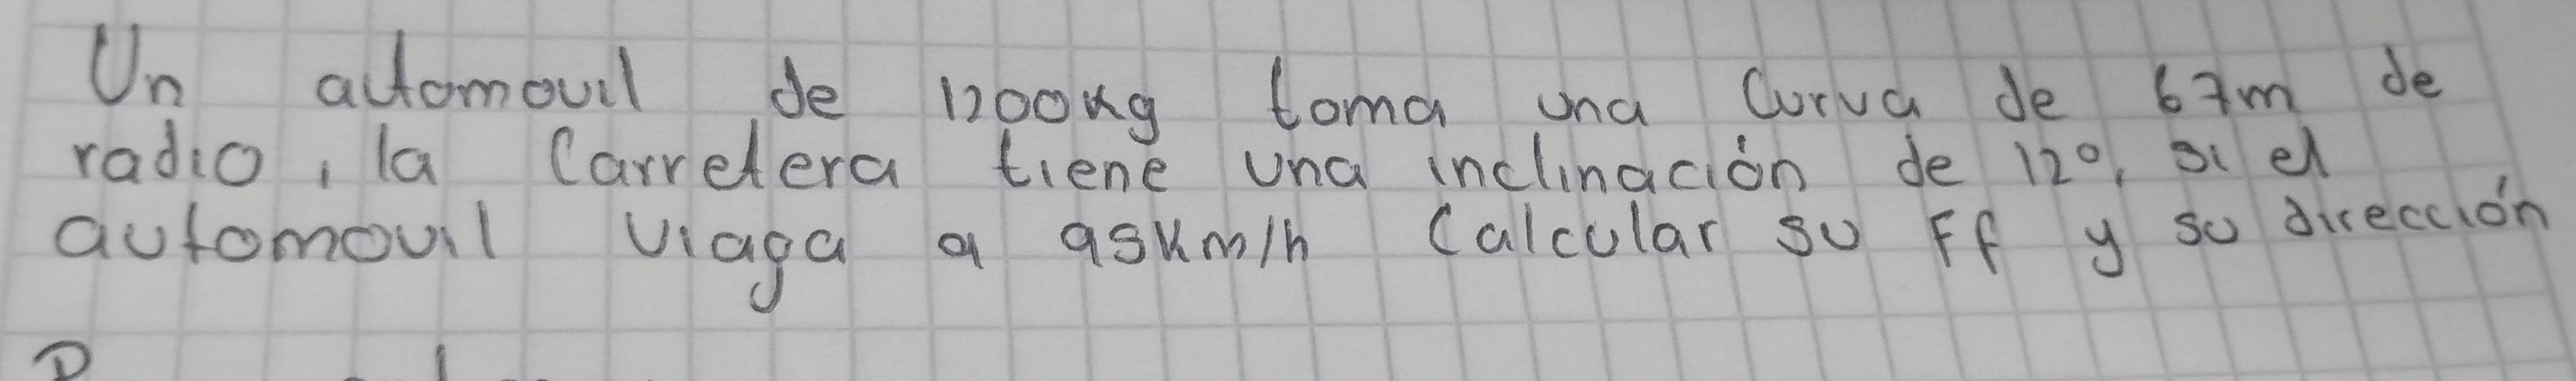 Un automovil de 1200kg toma una Curva de 67m de
radio, la Carretera tiene una inclinación de 12°, si el
automovil viaga a 95km/h Calcular su Ff y su dirección